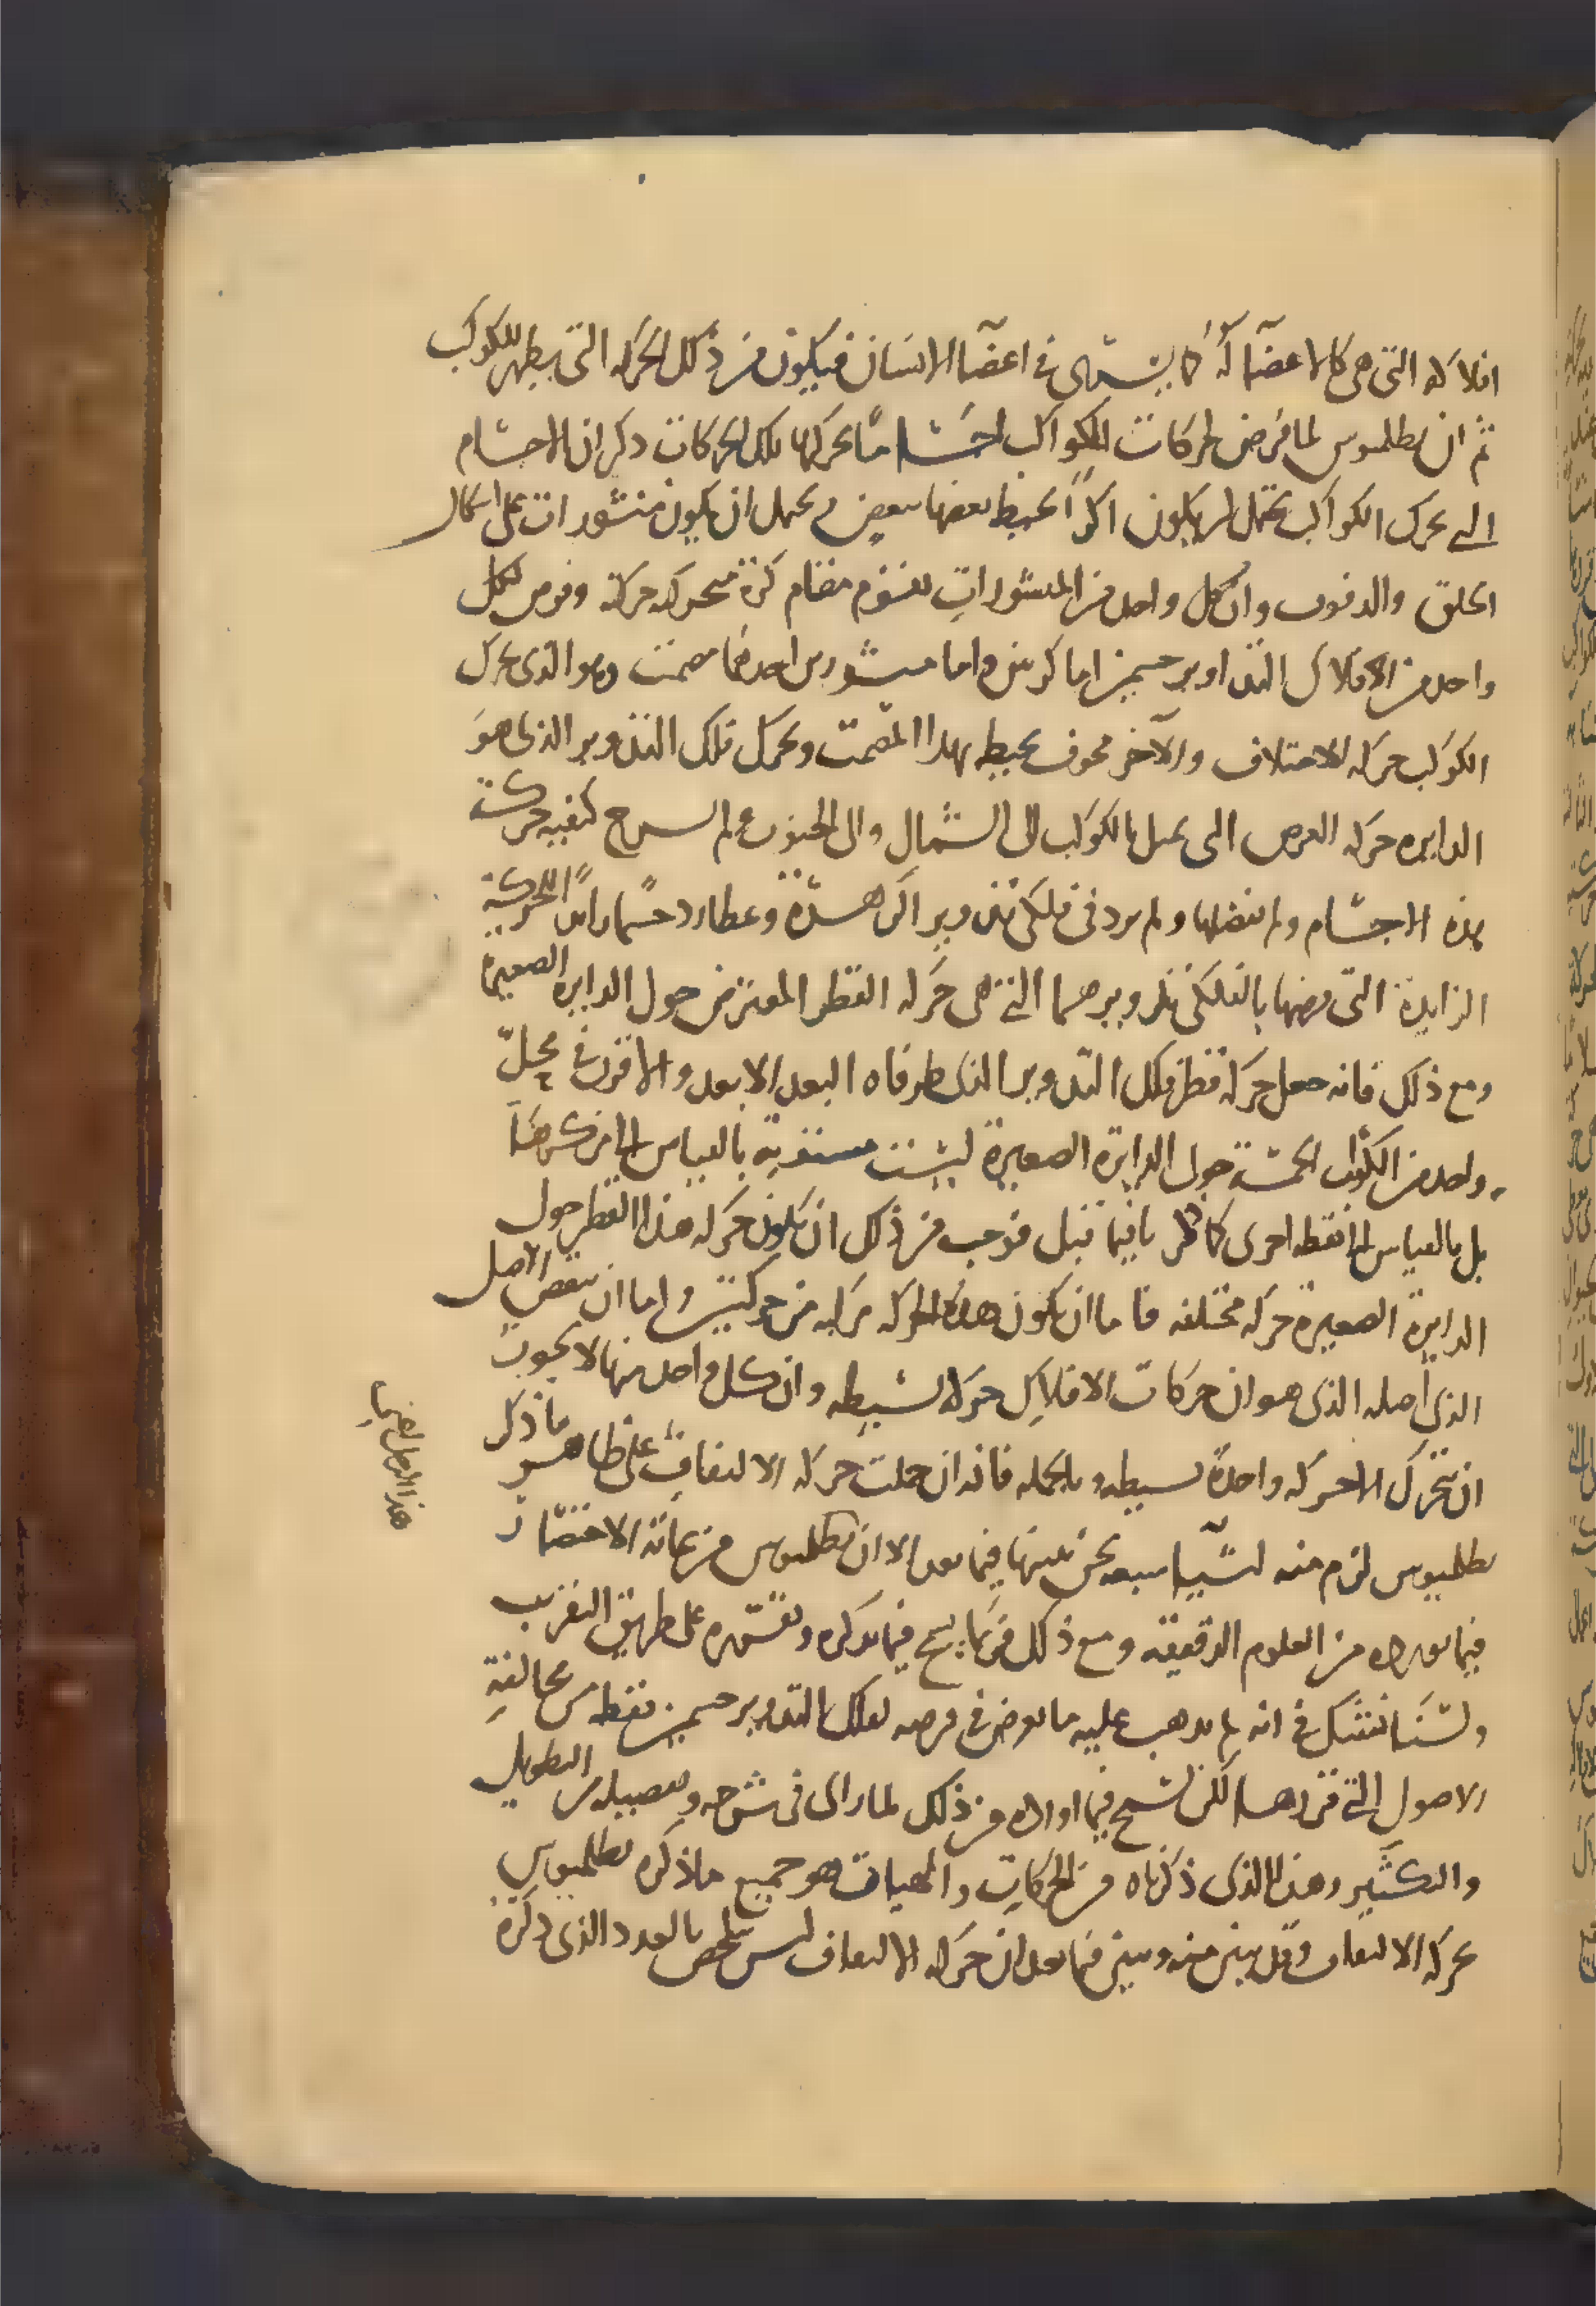 افلاكه التى هى كالاعضا له كما يشتهى فى اعضا الانسان فيكون من ذلك الحركه التى يظهر للكوكب
ثم ان بطلميوس لما فرض لحركات الكواكب اجساما يحركها تلك الحركات ذكر ان الاجسام
التى تحرك الكواكب يحتمل ان يكون اكرًا يحيط بعضها ببعض ويحتمل ان يكون منشورات على اشكال
الحلق والدفوف وان كل واحد من المنشورات تقوم مقام كرة متحركه حركة وفرض لكل
واحد من الافلاك التداوير جسمين اما كرتين واما منشورين احدهما مصمت وهو الذى يحرك
الكوكب حركه الاختلاف والآخر مجوف يحيط بهذا المصمت ويحرك فلك التدوير الذى هو
الدايره حركه العرض التى تميل بالكوكب الى الشمال والى الجنوب ولم يشرح كيفيه حركة
هذه الاجسام ولم يفصلها ولم يزد فى فلكى تدوير الزهرة وعطارد جسما زايدًا للحركة
الزايدة التى فرضها بالفلكى تدويرهما التى هى حركه القطر المعترض حول الدايره الصغيرة
ومع ذلك فانه جعل حركة قطر فلك التدوير الذى طرفاه البعد الابعد والاقرب فى كل
واحد من الكواكب الخمسة حول الدايرة الصغيرة ليست مستوية بالقياس الى مركزها
بل بالقياس الى نقطه اخرى كما ذكرنا فيما قبل فوجب من ذلك ان يكون حركه هذا القطر حول
الدايرة الصغيرة حركه مختلفه فاما ان يكون هذه الحركه مركبه من حركتين واما ان ينقض الاصل
الذى اصله الذى هو ان حركات الافلاك حركه بسيطه وان كل واحد منها لا يجوز
ان يتحرك الا حركه واحدة بسيطه وبالجمله فانه ان حملت حركه الالتفاف على ظاهر ما ذكر
بطلميوس لزم منه اشيا شبعه نحن نبينها فيما بعد الا ان بطلميوس من عادته الاختصار
فيما يورده من العلوم الدقيقه ومع ذلك فربما يسمح فيما يذكره ويقسمه على طريق التقريب
ولسنا نشك فى انه لم يذهب عليه ما يعرض فى فرضه لفلك التدوير جسمين فقط من مخالفة
الاصول التى قررها لكن تسمح فيما اورده من ذلك لما راى فى شرحه وتفصيله من التطويل
والتكثير وهذا الذى ذكرناه من الحركات والهيات هو جميع ما ذكره بطلميوس
لحركه الالتفاف وقد تبين منه ونبين فيما بعد ان حركه الالتفاف ليس تلخص بالعدد الذى ذكره
هذا الرجل